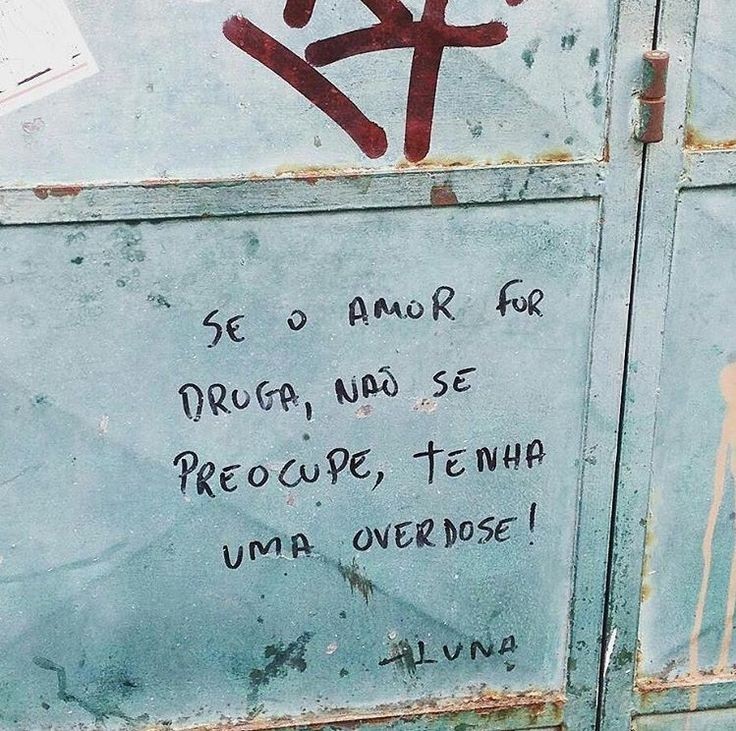 SE O AMOR FOR
DROGA, NAÕ SE
PREOCUPE, TENHA
UMA OVERDOSE!
-LUNA